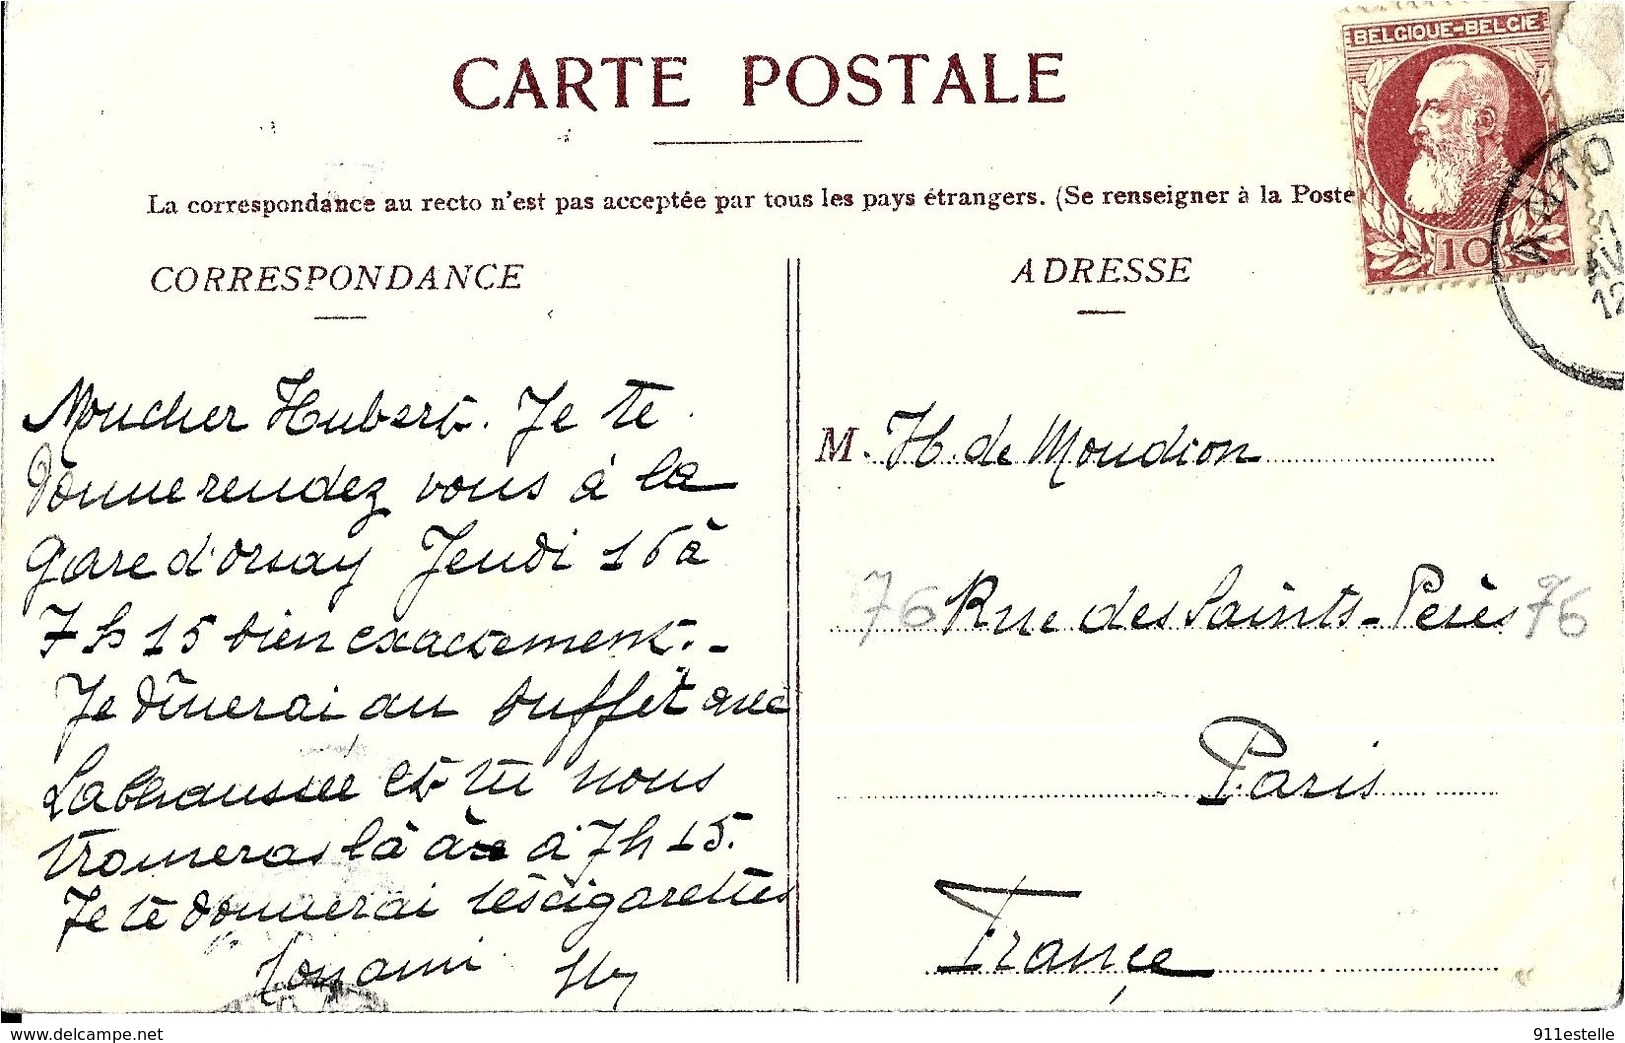 BELGIQUE-BELGIE
10
CARTE POSTALE
La correspondance au recto n'est pas acceptée par tous les pays étrangers. (Se renseigner à la Poste
CORRESPONDANCE
ADRESSE
Moncher Hubert. Je te
donne rendez vous à la
gare d'orsay Jeudi 16 à
7 h 15 bien exactement. -
Je dînerai au buffet avec
Labhaussee et tu nous
trouveras là à 7h 15.
Je te donnerai tes cigarettes
Ton ami
M. H. de Moudion
76 Rue des Saints-Perès 76
Paris
France
www.delcampe.net
911estelle